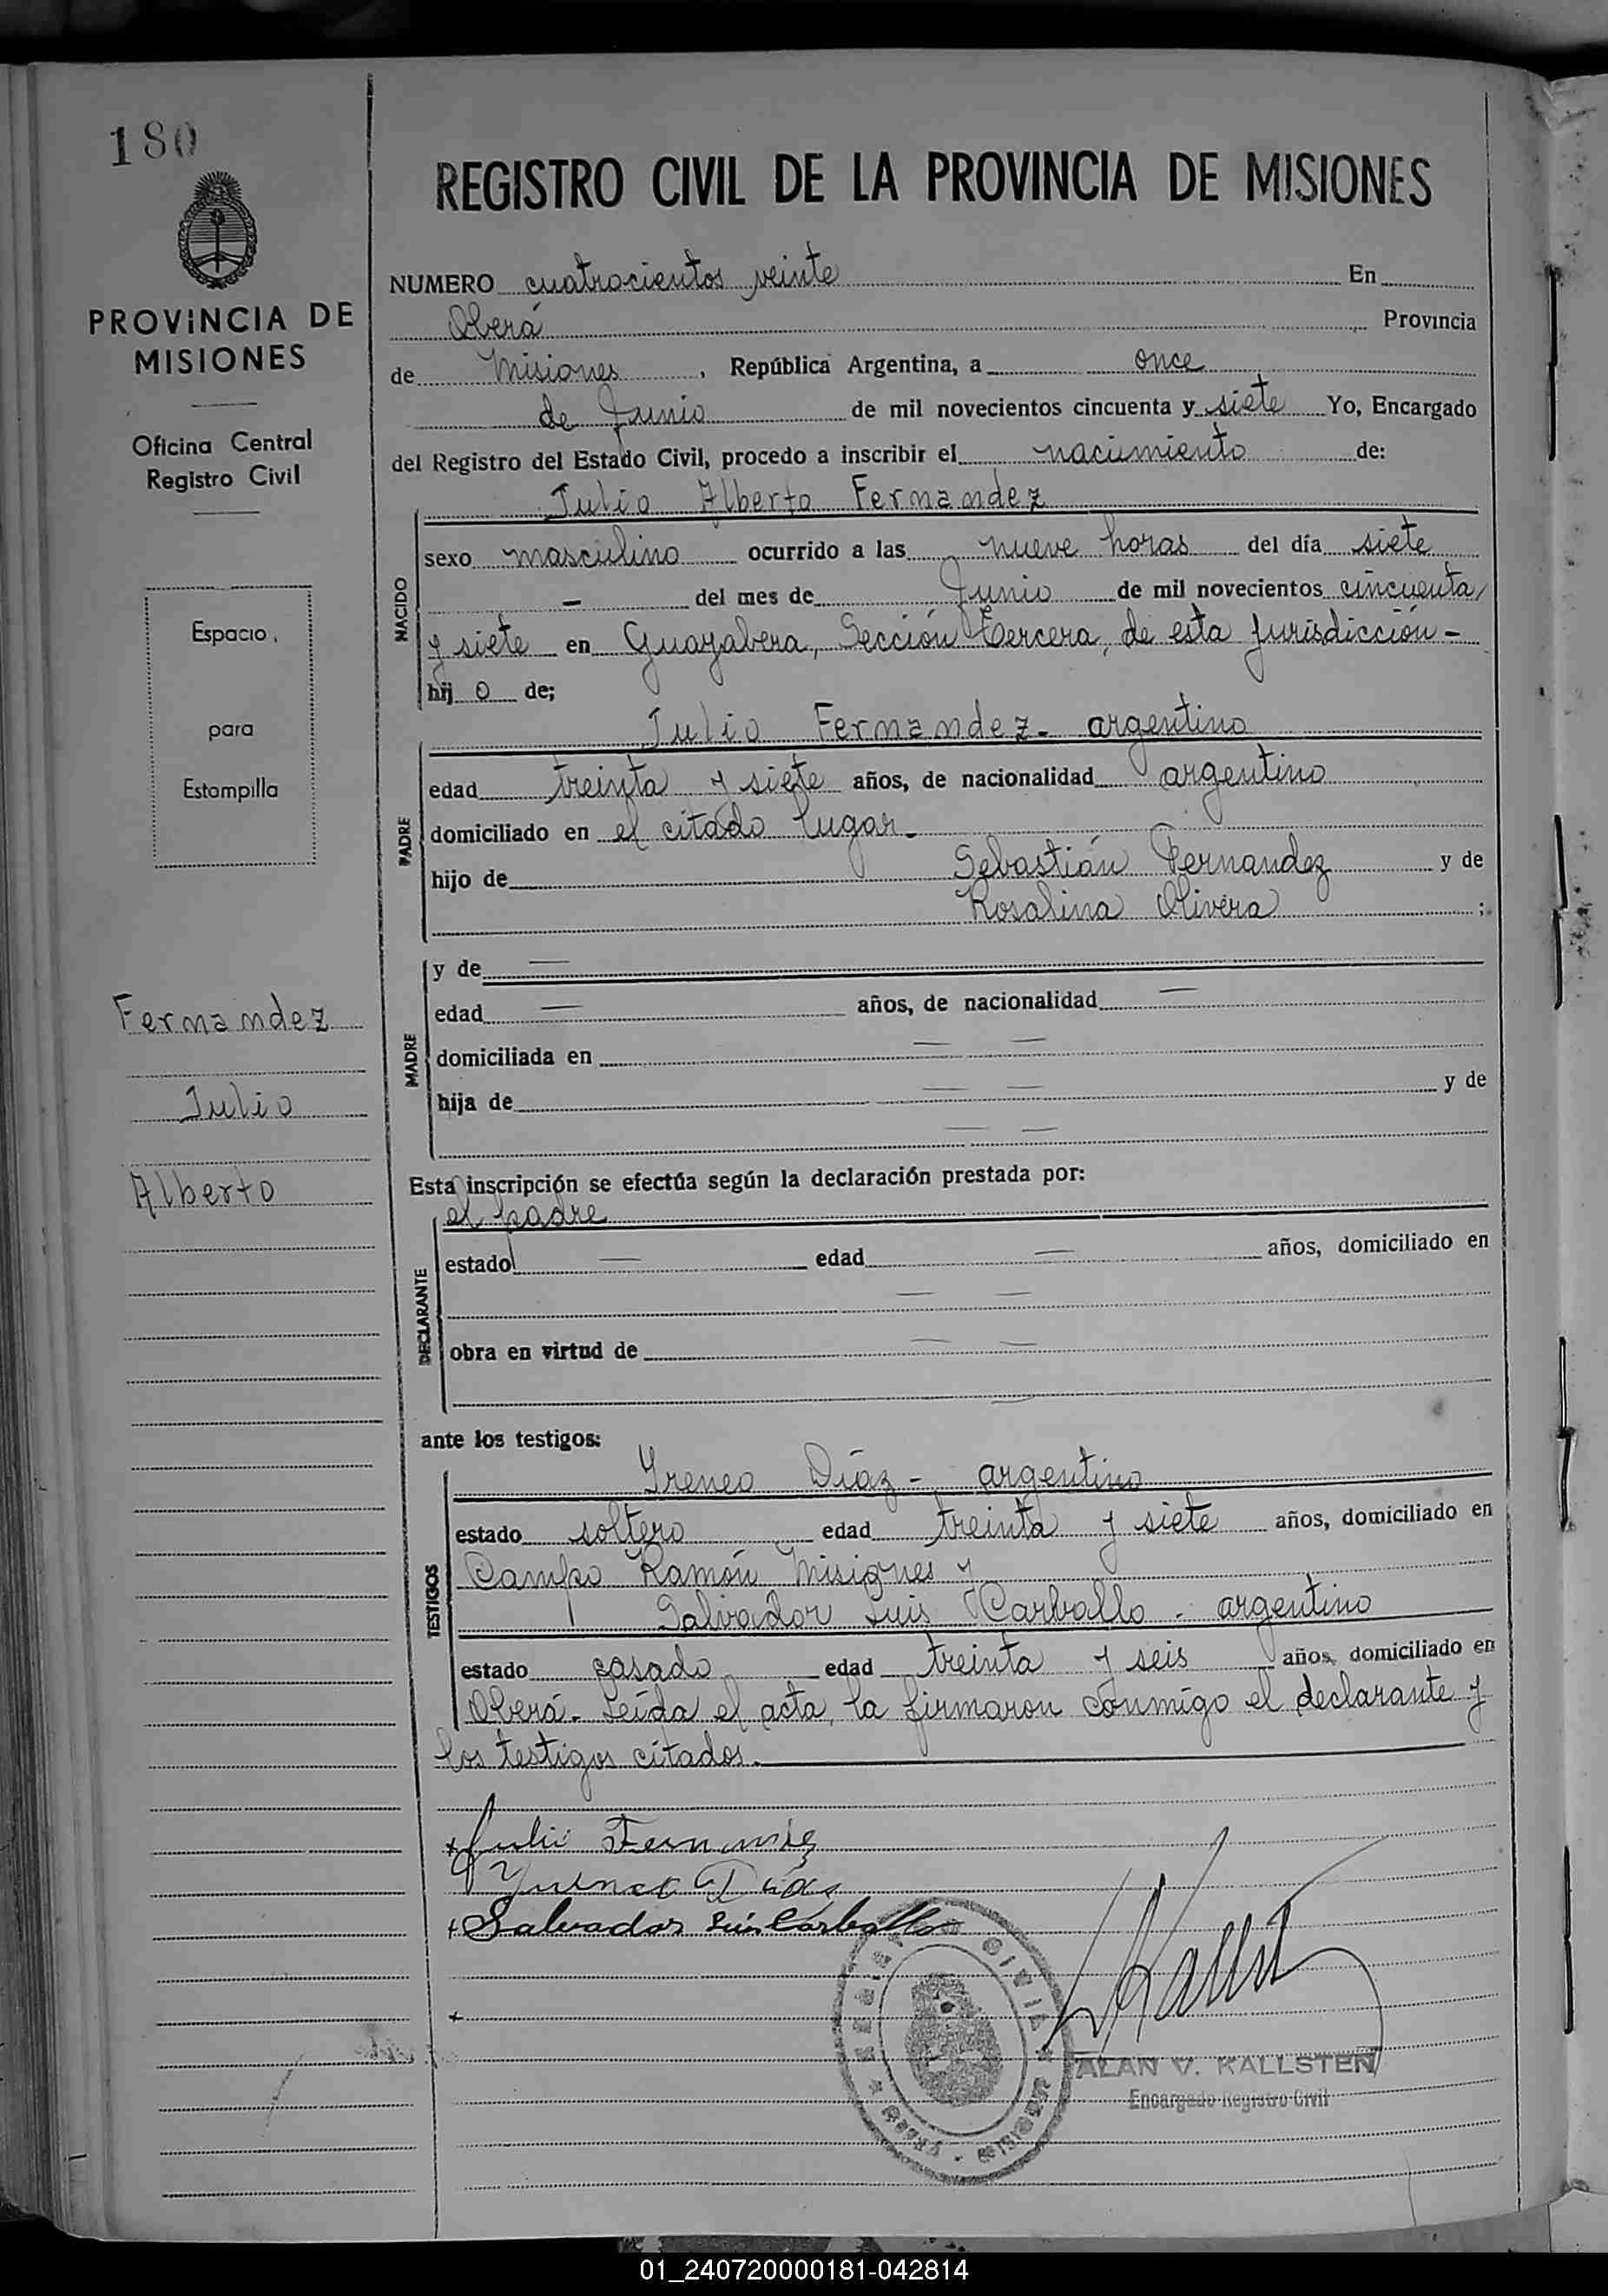 180
PROVINCIA DE
MISIONES
Oficina Central
Registro Civil
Espacio
para
Estampilla
Fernandez
Julio
Alberto
REGISTRO CIVIL DE LA PROVINCIA DE MISIONES
NUMERO cuatrocientos veinte En
Oberá Provincia
de Misiones, República Argentina, a once
de Junio de mil novecientos cincuenta y siete Yo, Encargado
del Registro del Estado Civil, procedo a inscribir el nacimiento de:
Julio Alberto Fernandez
NACIDO
sexo masculino ocurrido a las nueve horas del día siete
- del mes de Junio de mil novecientos cincuenta
y siete en Guayabera, Sección Tercera, de esta jurisdicción -
hij o de;
Julio Fernandez - argentino
PADRE
edad treinta y siete años, de nacionalidad argentino
domiciliado en el citado lugar -
hijo de Sebastián Fernandez y de
Rosalina Olivera ;
MADRE
y de —
edad — años, de nacionalidad —
domiciliada en — —
hija de — — y de
— —
Esta inscripción se efectúa según la declaración prestada por:
el padre
DECLARANTE
estado — edad — años, domiciliado en
— —
obra en virtud de — —
—
ante los testigos:
Yreneo Díaz - argentino
TESTIGOS
estado soltero edad treinta y siete años, domiciliado en
Campo Ramón Misiones y
Salvador Luis Carballo - argentino
estado casado edad treinta y seis años, domiciliado en
Oberá - Leída el acta, la firmaron conmigo el declarante y
los testigos citados.
+ Julio Fernandez
Yreneo Diaz
+ Salvador Luis Carballo
+
REGISTRO CIVIL
OBERA - MISIONES
ALAN V. KALLSTEN
Encargado Registro Civil
01_240720000181-042814